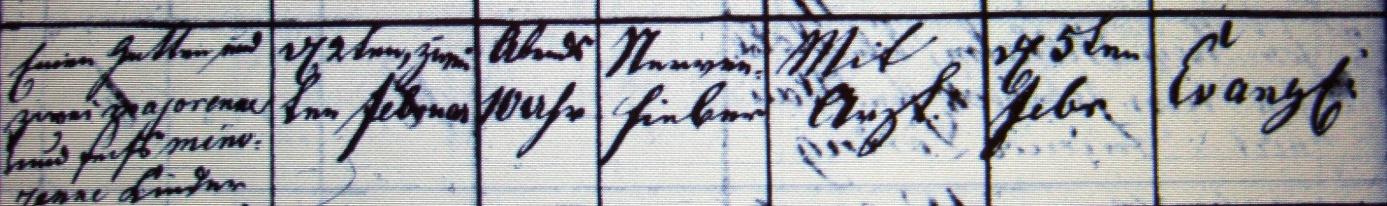 Einen Gatten und
zwei majorenne
und sechs mino-
renne Kinder
d 2ten, zwei
ten Februar
Abends
10 Uhr
Nerven-
fieber
Mit
Arzt.
d 5ten
Febr.
Evangl.